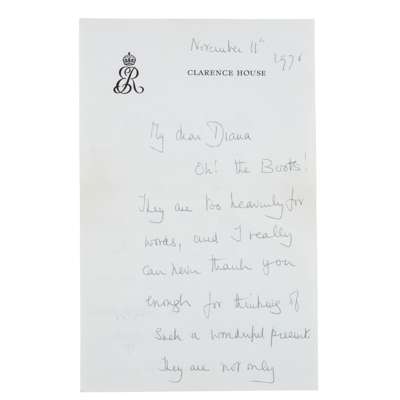 November 11th
1976
CLARENCE HOUSE
ER
My dear Diana
Oh! the Boots!
They are too heavenly for
words, and I really
can never thank you
enough for thinking of
such a wonderful present.
They are not only